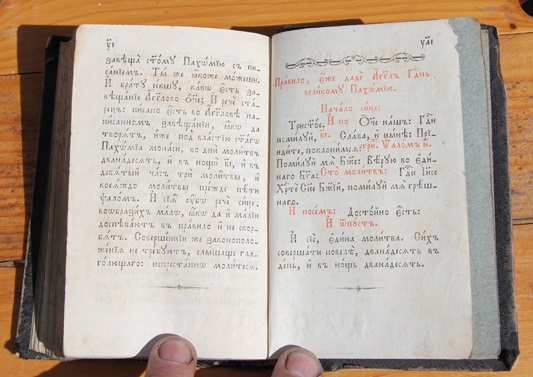 у҃і
завѣща̀ ст҃о́мꙋ Пахо́мїю съ пи-
са́нїемъ. Ты́ же ꙗ҆́коже мо́жеши.
И҆ бра́тꙋ ре́кшꙋ, ка́кѡ є҆́сть за-
вѣща́нїе А҆́гг҃лово Ѻ҆́ч҃е; И҆ речѐ ста́-
рецъ: пи́сано є҆́сть во А҆́гг҃ловѣ на-
пи́санномъ завѣща́нїи, ꙗ҆́кѡ да
творѧ́тъ, и҆̀же под̾ вла́стїю ст҃а́гѡ
Пахѡ́мїа мона́си, во днѝ моли́твъ
двана́десѧть, и҆ въ но́щи в҃і, и҆ въ
девѧ́тый ча́съ трѝ моли́твы, и҆
коеѧ́ждо моли́твы пре́жде пѣ́ти
ѱало́мъ. И҆ сїѧ̑ ᲂу҆́бѡ речѐ си́це,
воѡбрази́хъ ма́лѡ, ꙗ҆́кѡ да и҆ ма́лїи
доспѣва́ютъ въ пра́вило и҆ не скор-
бѧ́тъ. Соверше́ннїи же законополо-
же́нїѧ не тре́бꙋютъ, слы́шаще гла-
го́лющаго: непреста́ннѡ моли́тесѧ.
уа҃і
Пра́вило, є҆́же дадѐ А҆́гг҃лъ Гд҇ень
вели́комꙋ Пахо́мїю.
Нача́ло си́це:
Трист҃о́е, И҆ по Ѻ҆́ч҃е на́шъ: Гд҇и
поми́лꙋй, в҃і. Сла́ва, и҆ ны́нѣ: Прї-
иди́те, поклони́мсѧ: три. Ѱало́мъ н҃.
Поми́лꙋй мѧ̀ Бж҃е: Вѣ́рꙋю во є҆ди́-
наго Бг҃а: Сто̀ моли́твъ: Гд҇и І҆и҃се
Хр҇тѐ Сн҃е Бж҃їй, поми́лꙋй мѧ̀ грѣ́ш-
наго.
И҆ посе́мъ: Досто́йно є҆́сть:
И҆ ѿпꙋ́стъ.
И҆ сїѐ, є҆ди́на моли́тва. Си́хъ
соверша́ти повелѣ̀, двана́десѧть въ
де́нь, и҆ въ но́щь двана́десѧть.